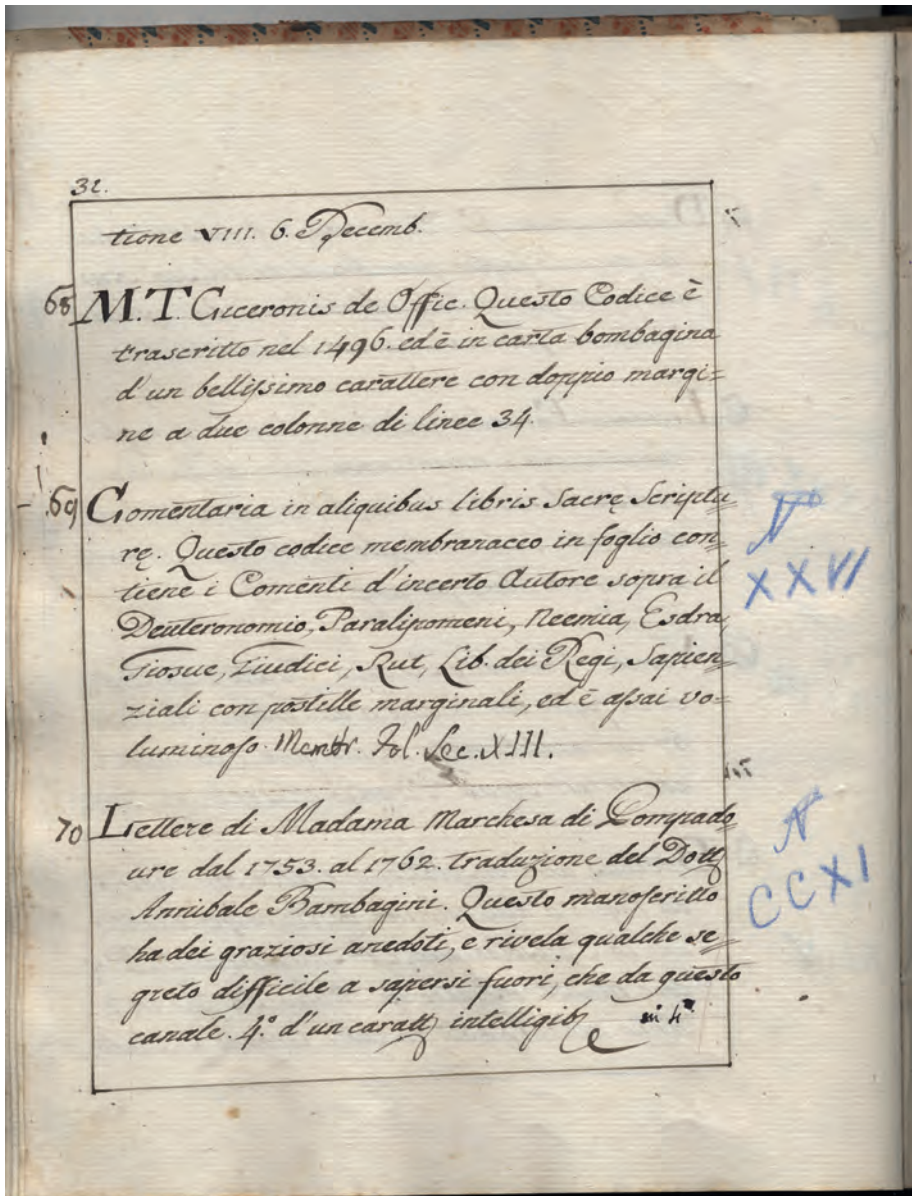 32.
tione VIII. 6. Decemb.
68 M. T. Ciceronis de Offic. Questo Codice è
trascritto nel 1496. ed è in carta bombagina
d'un bellissimo carattere con doppio margi=
ne a due colonne di linee 34.
69 Comentaria in aliquibus libris Sacrę Scriptu=
rę. Questo codice membranaceo in foglio con=
tiene i Comenti d'incerto Autore sopra il
Deuteronomio, Paralipomeni, Neemia, Esdra,
Giosue, Giudici, Rut, Lib. dei Regi, Sapien=
ziali con postille marginali, ed è assai vo=
luminoso. Membr. Fol. Sec. XIII.
N°
XXVI
70 Lettere di Madama Marchesa di Pompado=
ure dal 1753. al 1762. traduzione del Dott
Annibale Bambagini. Questo manoscritto
ha dei graziosi anedoti, e rivela qualche se=
greto difficile a sapersi fuori, che da questo
canale. 4.° d'un caratt intelligib in 4°
N
CCXI